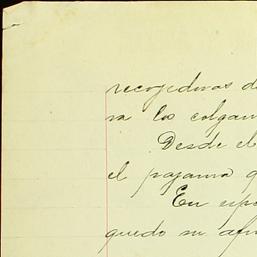 recojedoras d
ra los colgan
Desde el
el pajarra q
En espo
quedo su afi